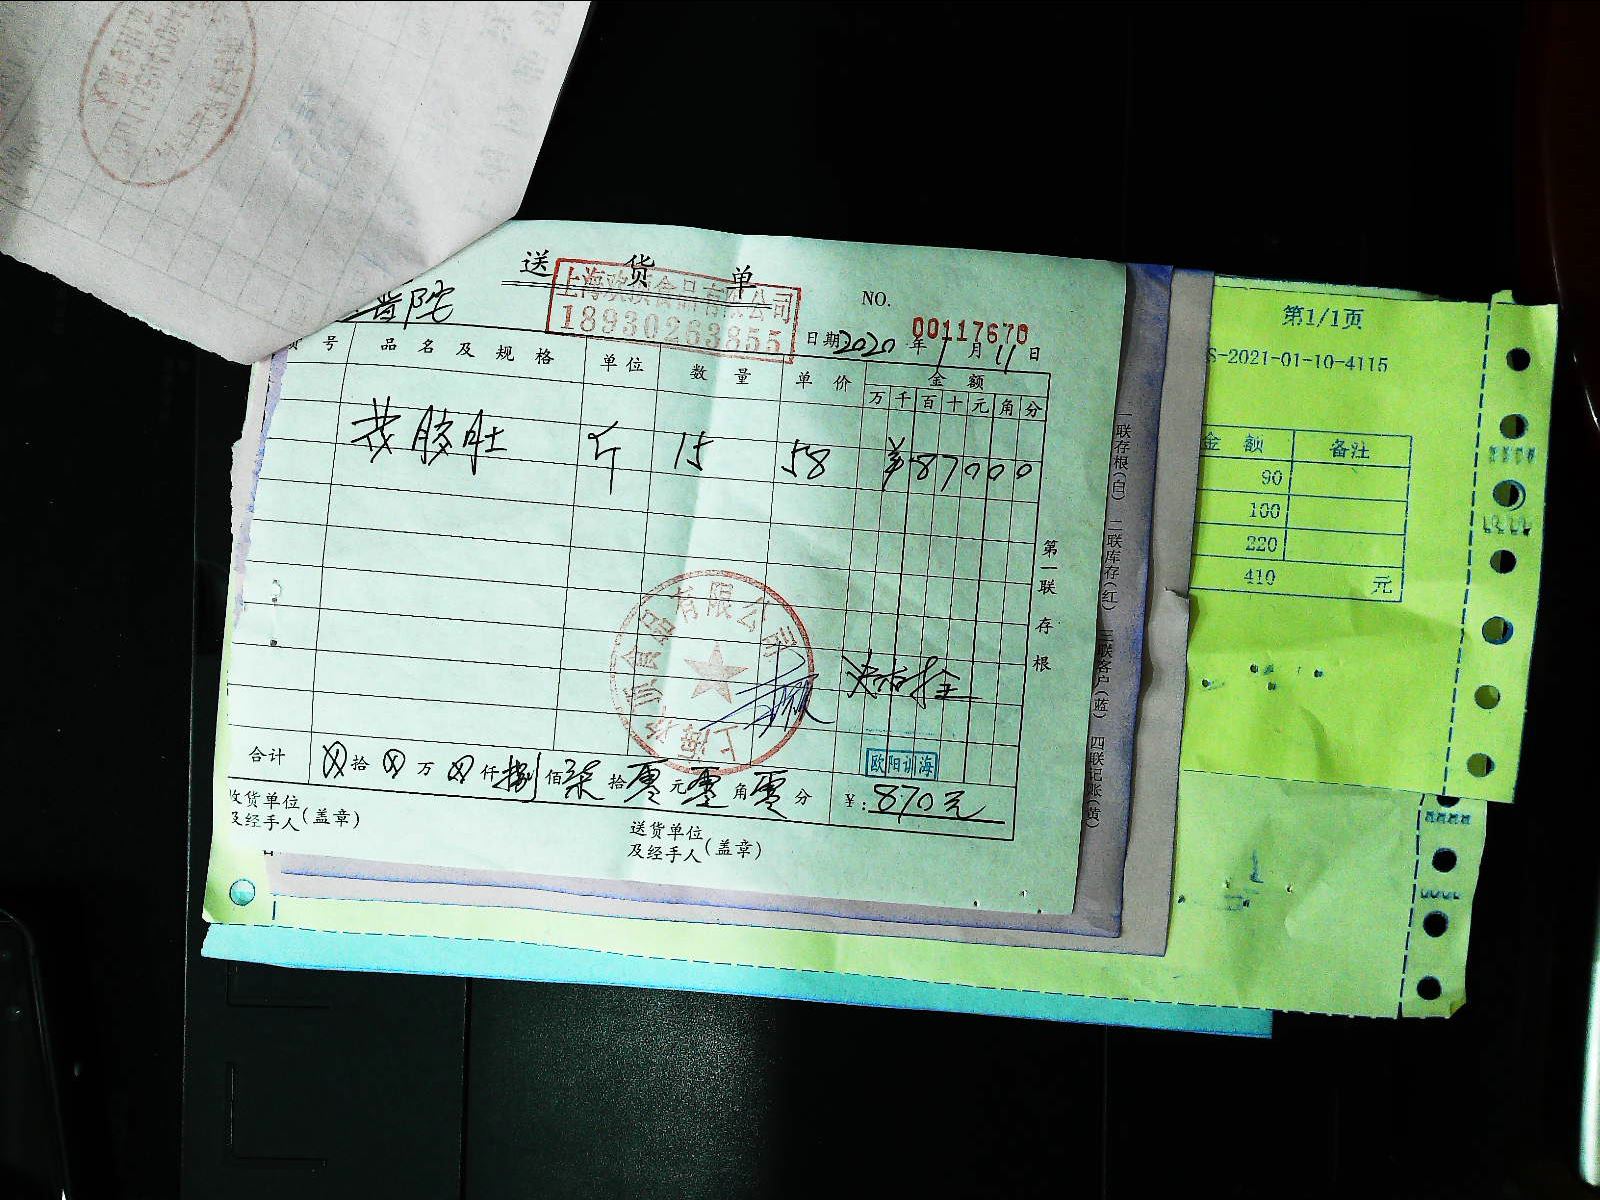 送货单
上海欢颂食品有限公司
18930263855
NO.
00117670
普陀
日期2020年1月11日
货号 品名及规格 单位 数量 单价 金额
万千百十元角分
斤 15 58 ¥87000
第一联存根
一联存根(白) 二联库存(红) 三联客户(蓝) 四联记账(黄)
食品有限公司
上海
欧阳训海
合计 ⊗拾⊗万⊗仟捌佰柒拾零元零角零分 ¥:870元
收货单位及经手人(盖章)
送货单位及经手人(盖章)
第1/1页
S-2021-01-10-4115
金额 备注
90
100
220
410 元